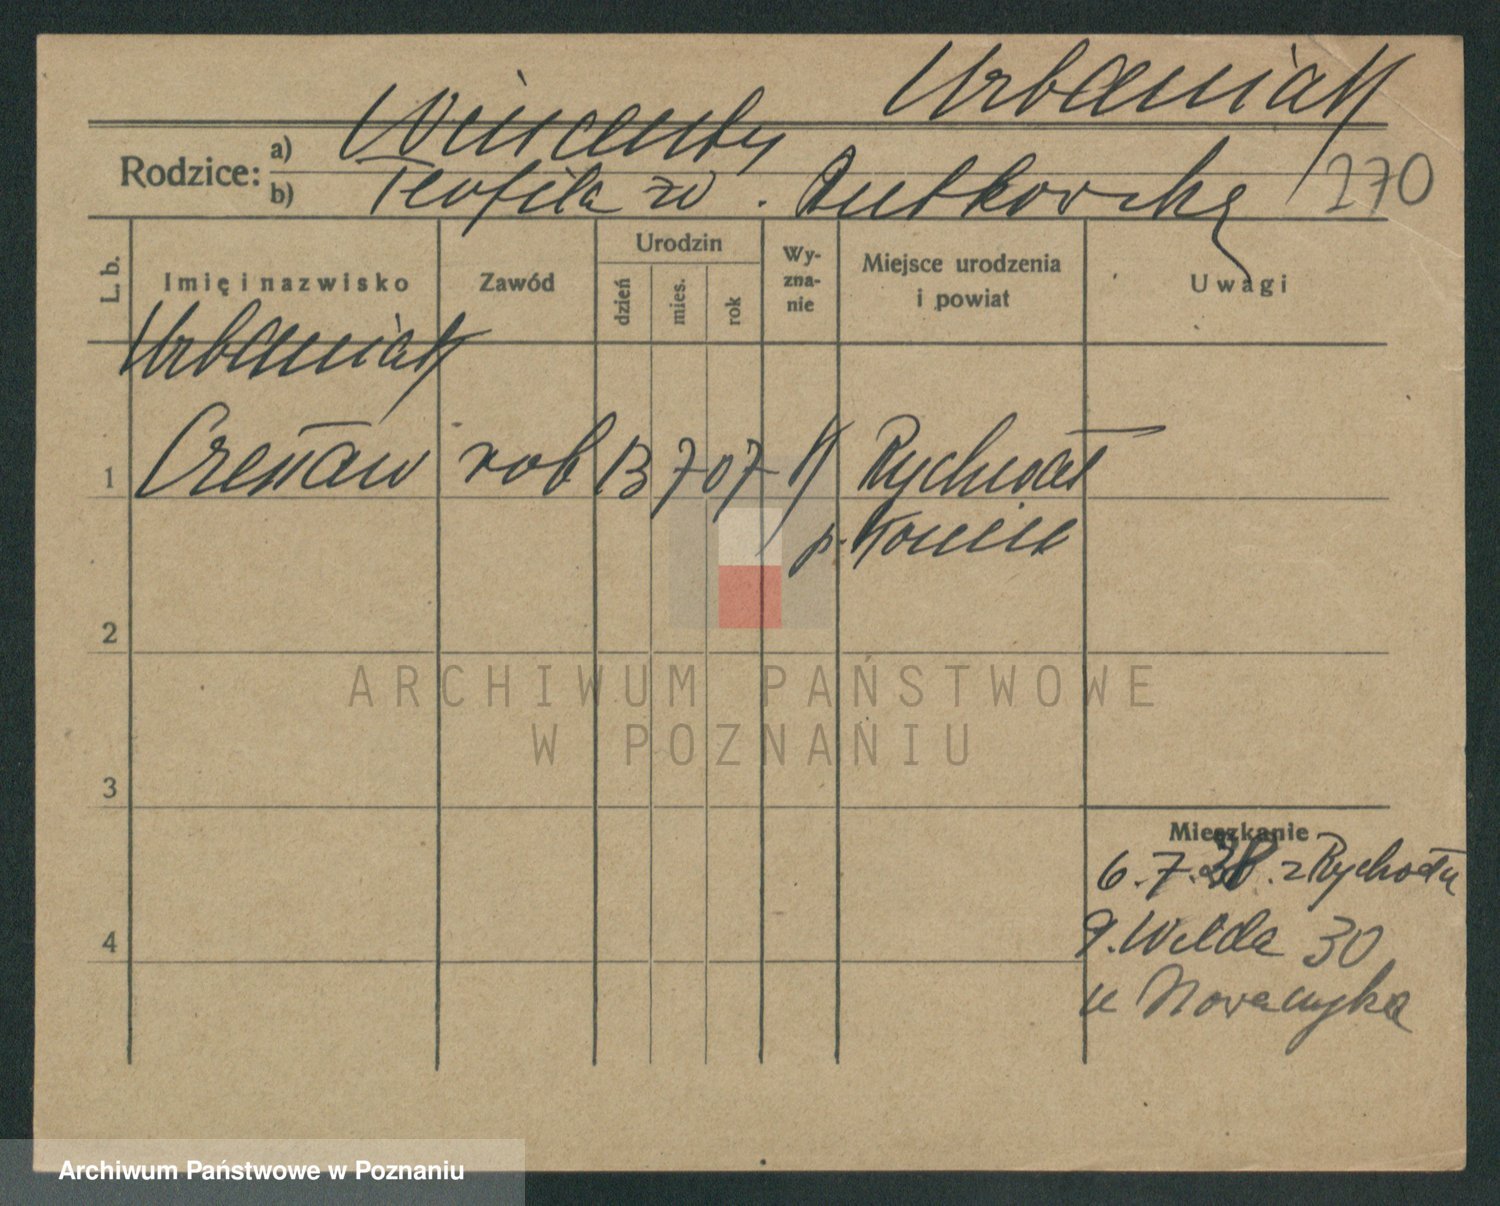 Urbaniak
Rodzice: a) Wincenty
b) Teofila zd. Rutkowska
270
L. b.
Imię i nazwisko
Zawód
Urodzin
dzień
mies.
rok
Wy-
zna-
nie
Miejsce urodzenia
i powiat
Uwagi
Urbaniak
1 Czesław rob 13 7 07 K Rychwał
p. Konin
2
3
4
Mieszkanie
6.7.38. z Rychwału
g. Wilda 30
u Nowaczyka
ARCHIWUM PAŃSTWOWE
W POZNANIU
Archiwum Państwowe w Poznaniu